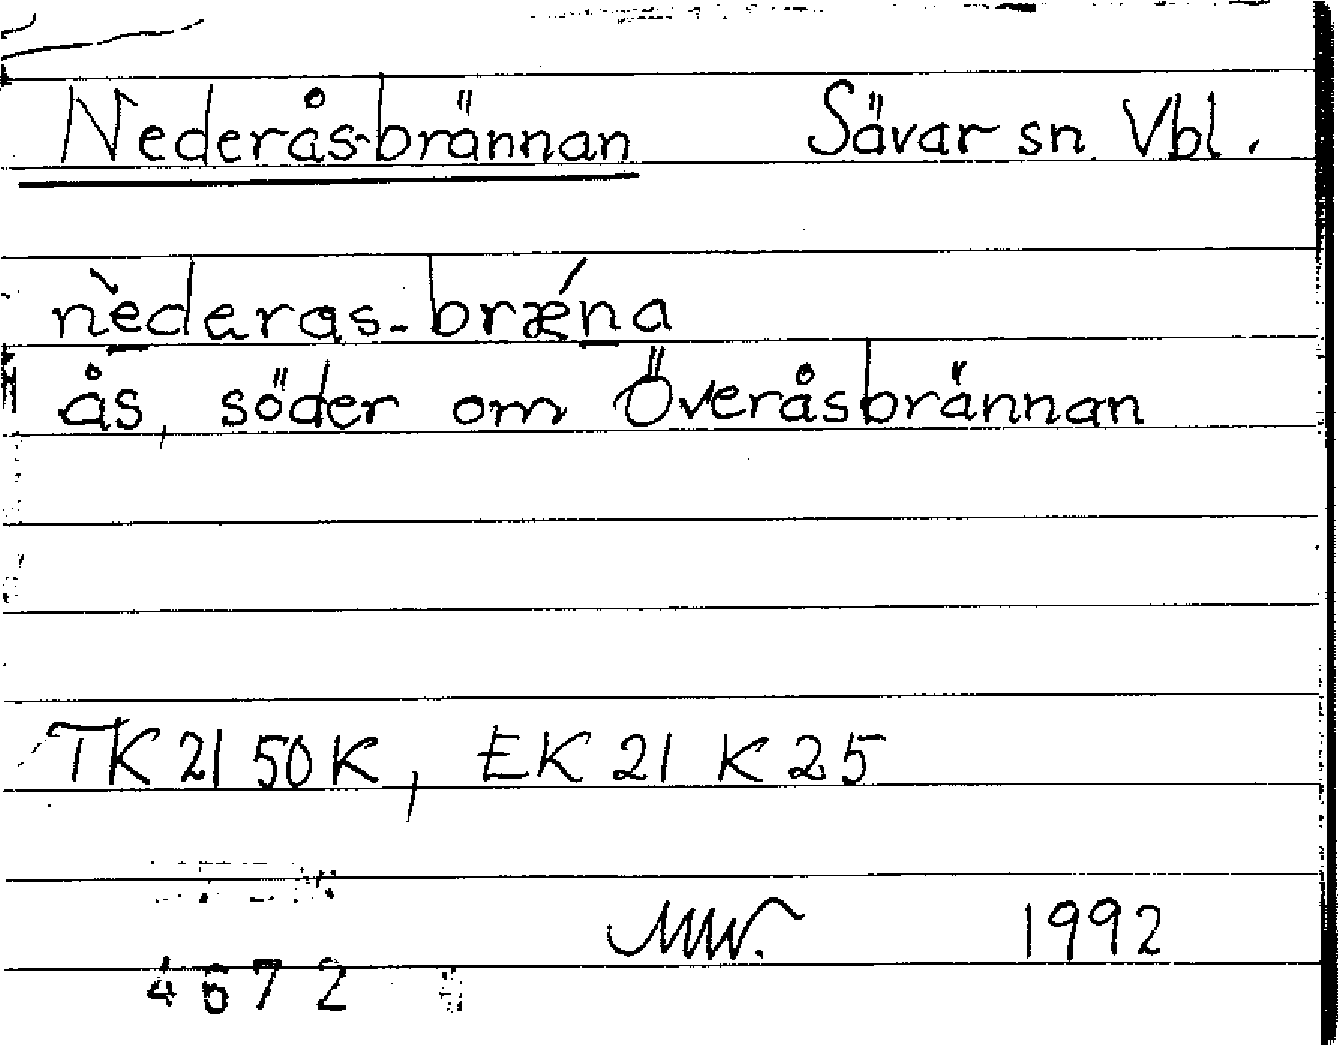 Nederås-brännan Sävar sn. Vbl.
nèderas-brǽna
ås, söder om Överåsbrännan
TK 21 50 K, EK 21 K 25
MW. 1992
4672